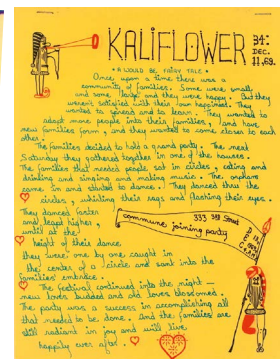 KALIFLOWER
34:
DEC.
11,69.
• A WOULD BE FAIRY TALE •
Once upon a time there was a
community of families. Some were small
and some large and they were happy. But they
weren't satisfied with their own happiness. They
wanted to spread and to learn. They wanted to
adopt more people into their families, and have
new families form, and they wanted to come closer to each
other.
The families decided to hold a grand party. The next
Saturday they gathered together in one of the houses.
The families that needed people sat in circles, eating and
drinking and singing and making music. The orphans
came in and started to dance. They danced thru the
circles, whirling their rags and flashing their eyes.
They danced faster
and leapt higher,
until at the
height of their dance
they were one by one caught in
the center of a circle and sank into the
families' embrace.
commune joining party
333 3rd Street
The festival continued into the night —
new loves budded and old loves blossomed.
The party was a success in accomplishing all
that needed to be done. And the families are
still radiant in joy and will live
happily ever after.